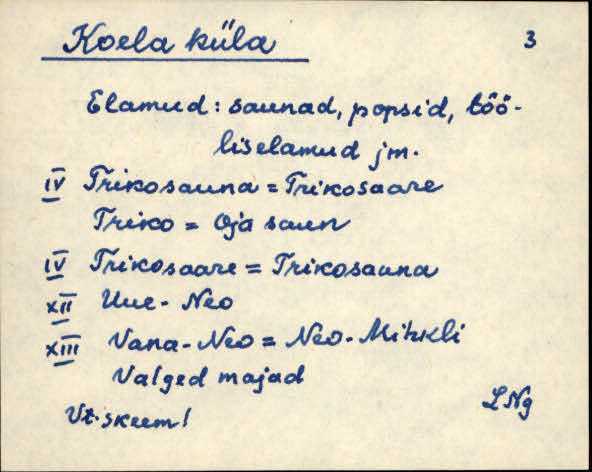 Koela küla 3
Elamud: saunad, popsid, töö-
liselamud jm.
IV Trikosauna = Trikosaare
Triko = Oja saun
IV Trikosaare = Trikosauna
XII Uue-Neo
XIII Vana-Neo = Neo-Mihkli
Valged majad
Vt. skeem! LNg